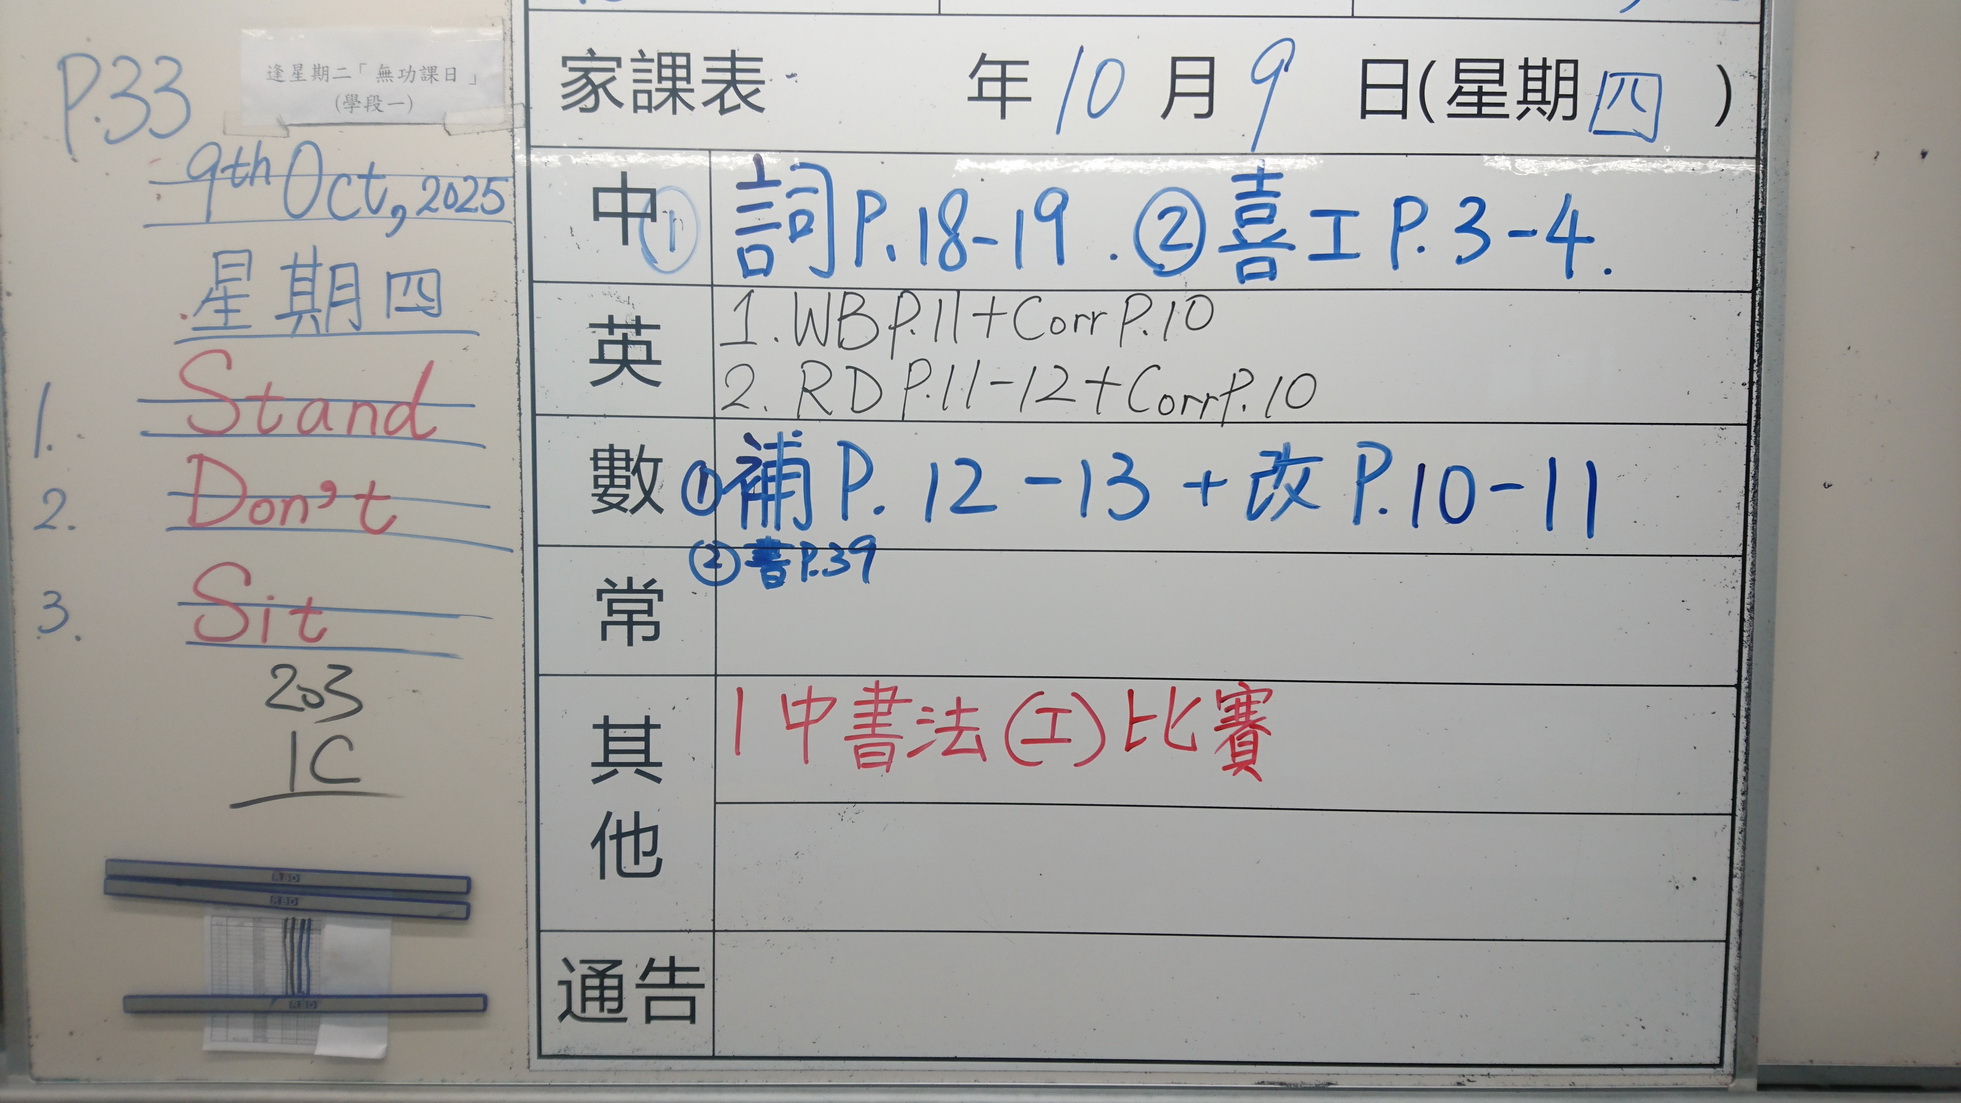 P.33
逢星期二「無功課日」
(學段一)
9th Oct, 2025
星期四
1. Stand
2. Don't
3. Sit
203
1C
家課表 年 10 月 9 日(星期四)
中 ① 詞 P.18-19. ② 喜工 P.3-4.
英 1. WB P.11+Corr P.10
2. RD P.11-12+Corr P.10
數 ① 補 P.12-13+改 P.10-11
② 書 P.39
常
其他 1 中書法(工)比賽
通告